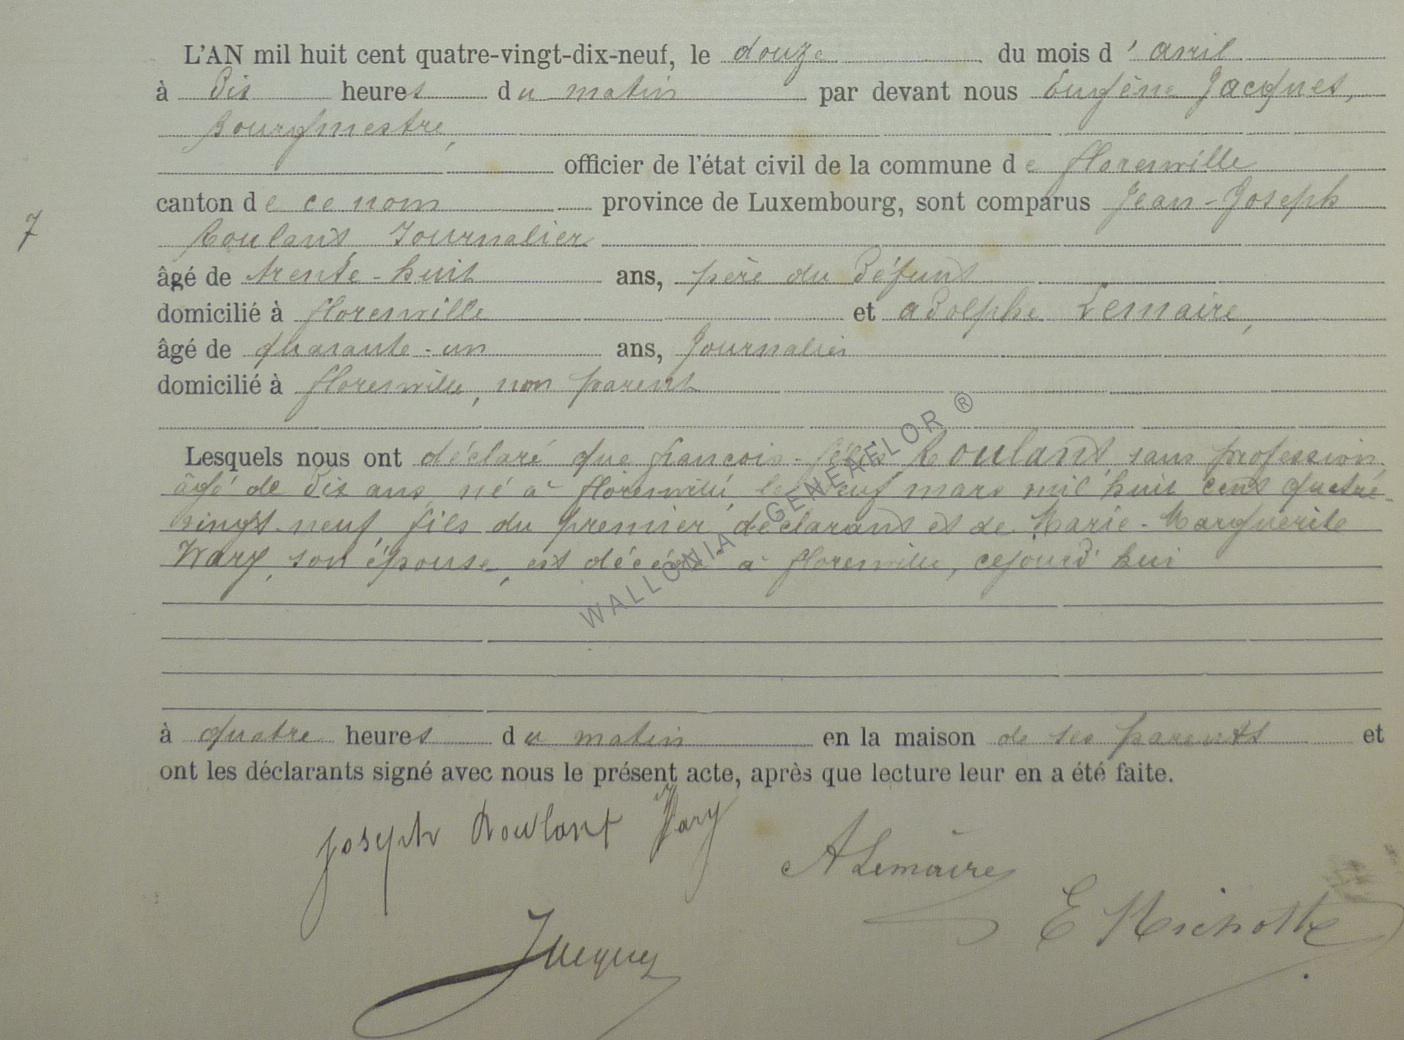 L'AN mil huit cent quatre-vingt-dix-neuf, le douze du mois d'avril
à Dix heures du matin par devant nous Eugène Jacques,
Bourgmestre,
officier de l'état civil de la commune de florenville
canton de ce nom province de Luxembourg, sont comparus Jean-Joseph
7
Roulant Journalier
âgé de trente-huit ans, père du Défunt
domicilié à florenville et aDolphe Lemaire,
âgé de quarante-un ans, Journalier
domicilié à florenville, non parent
Lesquels nous ont déclaré que françois-félix Roulant, sans profession,
âgé de Dix ans, né à florenville le neuf mars mil huit cent quatre-
vingt-neuf, fils du premier déclarant et de Marie-Marguerite
Wary, son épouse, est décédé à florenville, cejourd'hui
WALLONIA - GENEAFLOR ®
à quatre heures du matin en la maison de ses parents et
ont les déclarants signé avec nous le présent acte, après que lecture leur en a été faite.
joseph Roulant Wary
ALemaire
Jacques